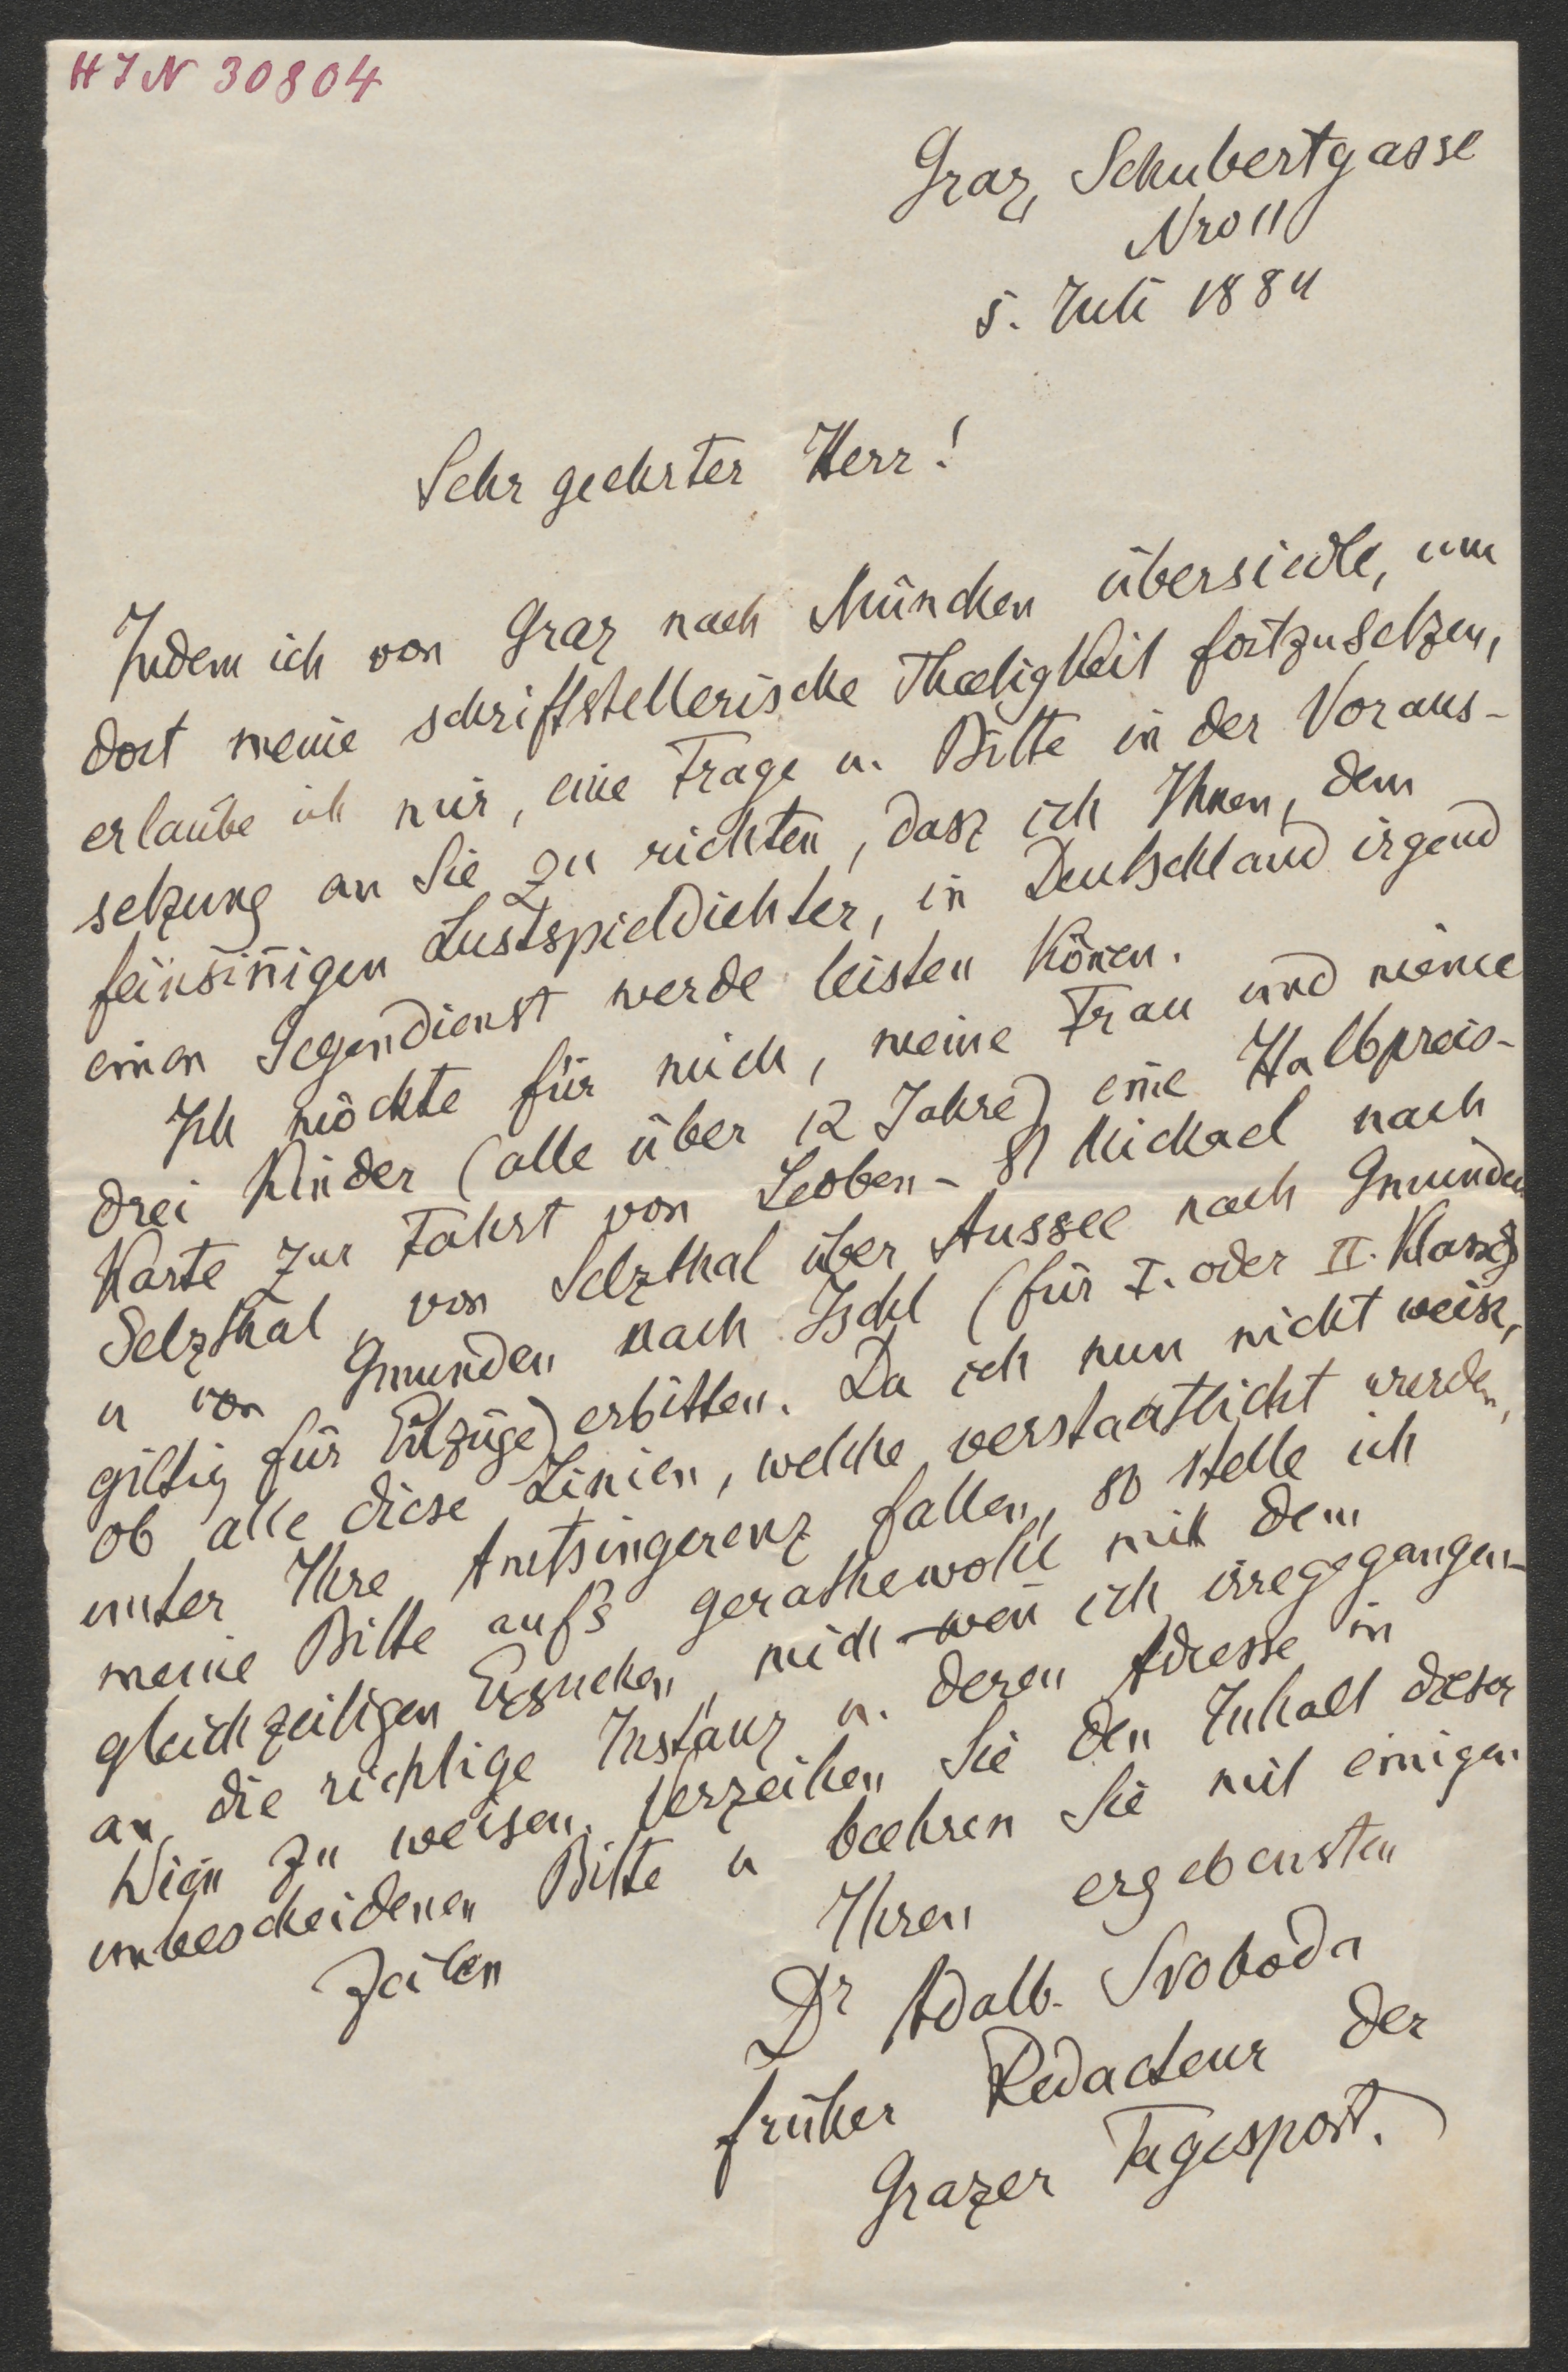 HIN 30804
Graz, Schubertgasse
Nro 11
5. Juli 1884
Sehr geehrter Herr!
Indem ich von Graz nach München übersiedle, um
dort meine schriftstellerische Thætigkeit fortzusetzen,
erlaube ich mir, eine Frage u. Bitte in der Voraus-
setzung an Sie zu richten, dasz ich Ihnen, dem
feinsin̄igen Lustspieldichter, in Deutschland irgend
einen Gegendienst werde leisten kön̄en.
Ich möchte für mich, meine Frau und meine
drei Kinder (alle über 12 Jahre) eine Halbpreis-
Karte zur Fahrt von Leoben - St Michael nach
Selzthal, von Selzthal über Aussee nach Gmunden
u von Gmunden nach Ischl (für I. oder II. Klasse,
giltig für Eilzüge) erbitten. Da ich nun nicht weisz,
ob alle diese Linien, welche verstaatlicht werden,
unter Ihre Amtsingerenz fallen, so stelle ich
meine Bitte aufs gerathewohl mit dem
gleichzeitigen Ersuchen, mich - wen̄ ich irregegangen -
an die richtige Instanz u. deren Adresse in
Wien zu weisen. Verzeihen Sie den Inhalt dieser
unbescheidenen Bitte u beehren Sie mit einigen
Zeilen
Ihren ergebensten
Dr Adalb. Svoboda
früher Redacteur der
Grazer Tagespost.